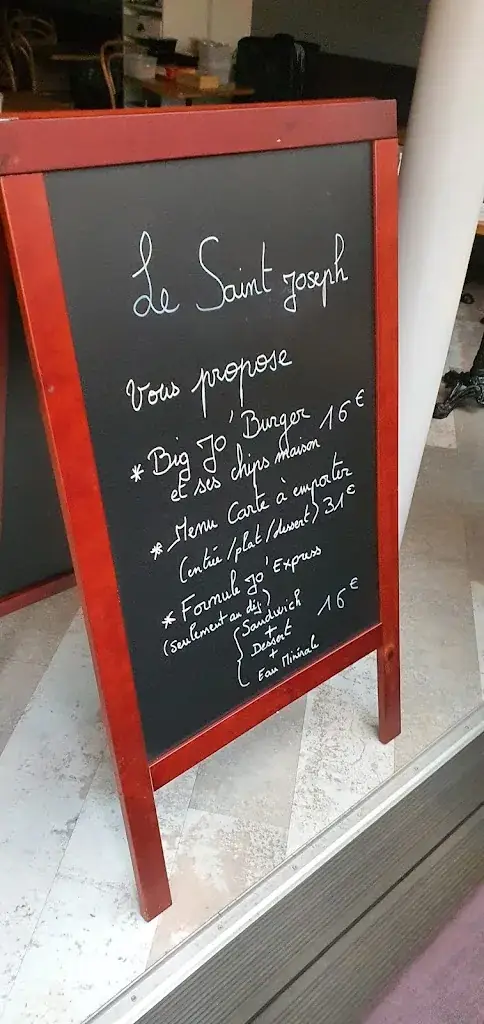 Le Saint Joseph
Vous propose
* Big Jo' Burger 16€
et ses chips maison
* Menu Carte à emporter
(entrée/plat/dessert) 31€
* Formule Jo' Express
(seulement au déj)
{ Sandwich 16€
+
Dessert
+
Eau Minérale